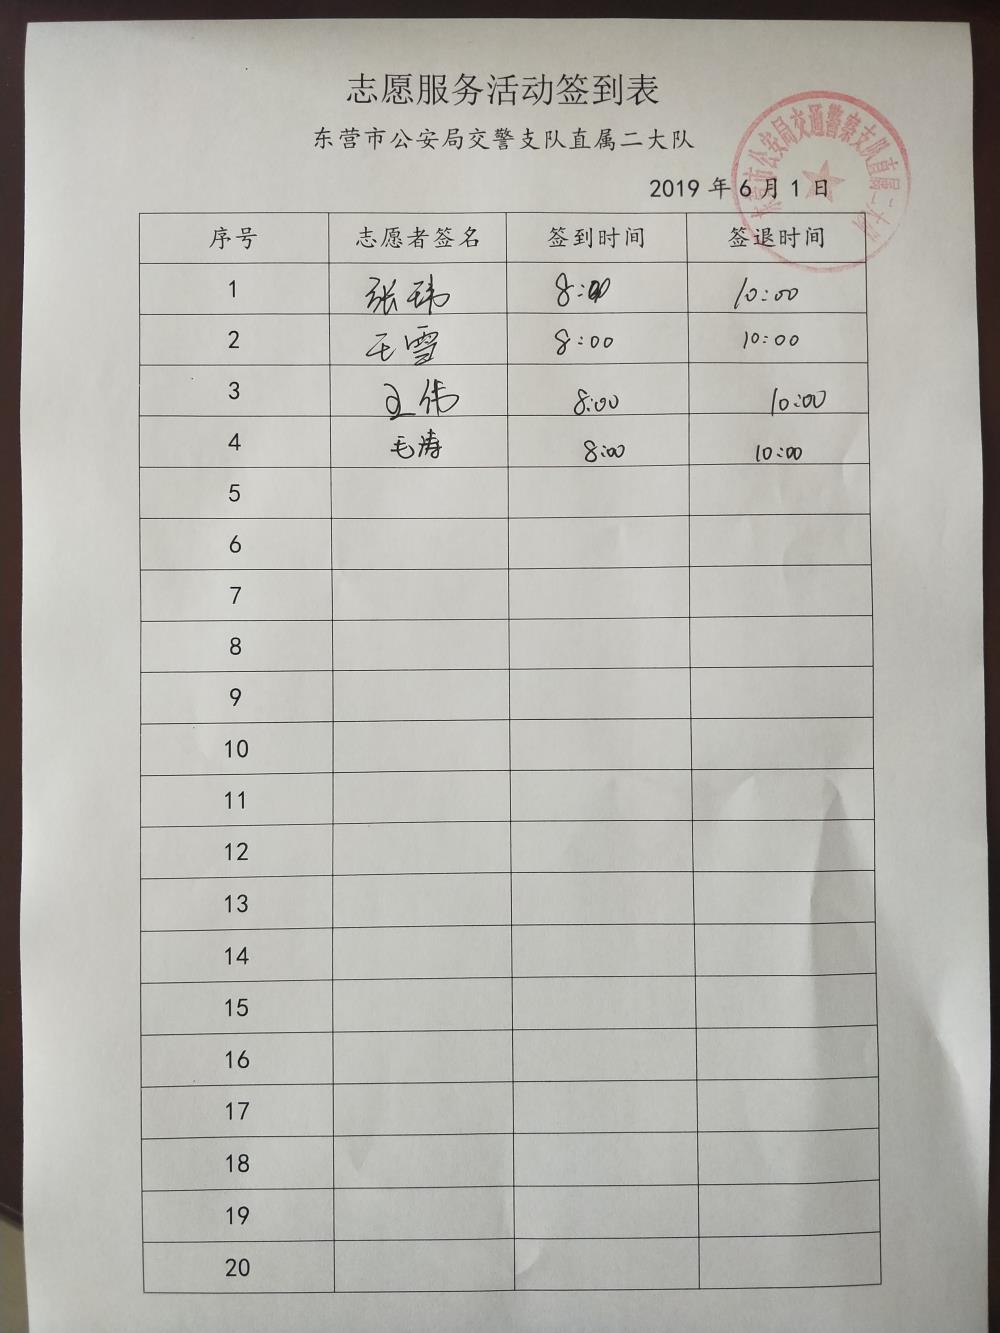 志愿服务活动签到表
东营市公安局交警支队直属二大队
东营市公安局交通警察支队直属二大队
2019 年 6 月 1 日
序号 志愿者签名 签到时间 签退时间
1 张玮 8:00 10:00
2 王雪 8:00 10:00
3 王伟 8:00 10:00
4 毛涛 8:00 10:00
5
6
7
8
9
10
11
12
13
14
15
16
17
18
19
20